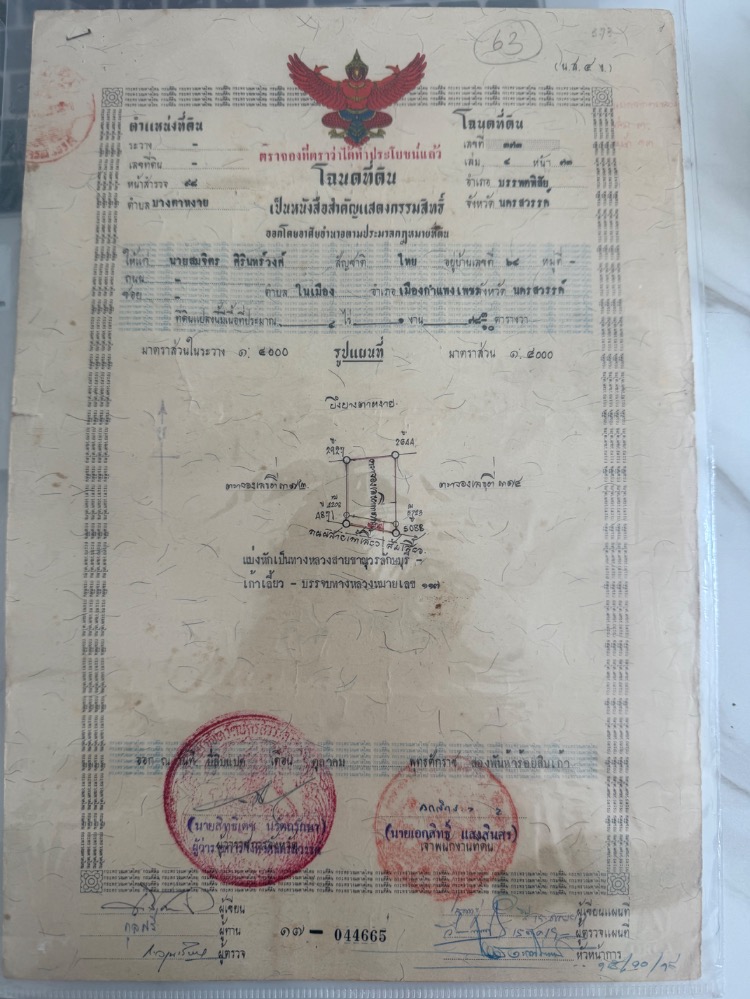 63
(น.ส.๔ ข.)
ตำแหน่งที่ดิน
ระวาง -
เลขที่ดิน -
หน้าสำรวจ ๙๘
ตำบล บางตาหงาย
โฉนดที่ดิน
เลขที่ ๓๗๓
เล่ม ๔ หน้า ๗๓
อำเภอ บรรพตพิสัย
จังหวัด นครสวรรค์
ตราจองที่ตราว่าได้ทำประโยชน์แล้ว
โฉนดที่ดิน
เป็นหนังสือสำคัญแสดงกรรมสิทธิ์
ออกโดยอาศัยอำนาจตามประมวลกฎหมายที่ดิน
ให้แก่ นายสมจิตร ศิรินทร์วงศ์ สัญชาติ ไทย อยู่บ้านเลขที่ ๒๘ หมู่ที่ -
ถนน -
ซอย - ตำบล ในเมือง อำเภอ เมืองกำแพงเพชร จังหวัด นครสวรรค์
ที่ดินแปลงนี้มีเนื้อที่ประมาณ ๔ ไร่ ๑ งาน ตารางวา
มาตราส่วนในระวาง ๑: ๔๐๐๐ รูปแผนที่ มาตราส่วน ๑: ๔๐๐๐
บึงบางตาหงาย
2927 2644
ตราจองเลขที่ ๓๗๒ ตราจองเลขที่ ๓๗๔
4871 5088
แบ่งหักเป็นทางหลวงสายขาณุวรลักษบุรี -
เก้าเลี้ยว - บรรจบทางหลวงหมายเลข ๑๑๗
ออก ณ วันที่ ยี่สิบแปด เดือน ตุลาคม พุทธศักราช สองพันห้าร้อยสิบเก้า
(นายเอกสิทธิ์ แสงสินศร)
ผู้ว่าราชการจังหวัดนครสวรรค์ เจ้าพนักงานที่ดิน
ผู้เขียน
ผู้ทาน
ผู้ตรวจ
๑๗ - 044665
ผู้เขียนแผนที่
ผู้ตรวจแผนที่
หัวหน้าการ